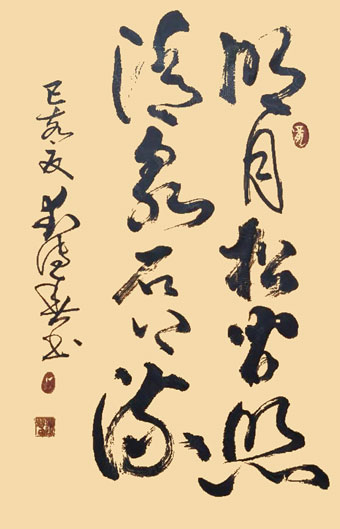 明月松间照
清泉石上流
己亥夏